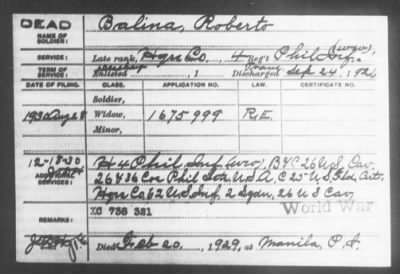 DEAD
Balina, Roberto
NAME OF SOLDIER:
SERVICE:
Late rank, Hqrs Co. 4 Reg't Phil Inf.
TERM OF SERVICE:
Enlisted , 1 Discharged Sep 24, 192
DATE OF FILING. CLASS. APPLICATION NO. LAW. CERTIFICATE NO.
Soldier,
1930 Aug 28 Widow, 1675999 R.E.
Minor,
12-18-30
ADDITIONAL SERVICES:
H 4 Phil Inf B & C 26 U.S. Cav.
26 & 36 Co Phil Scts U.S.A. C 25 U.S. Fld. Art.
Hqrs Co 62 U.S. Inf, 2 Sqdn, 26 U S Cav
XC 738 321 World War
REMARKS:
Died Feb 20, 1929, at Manila, P.I.